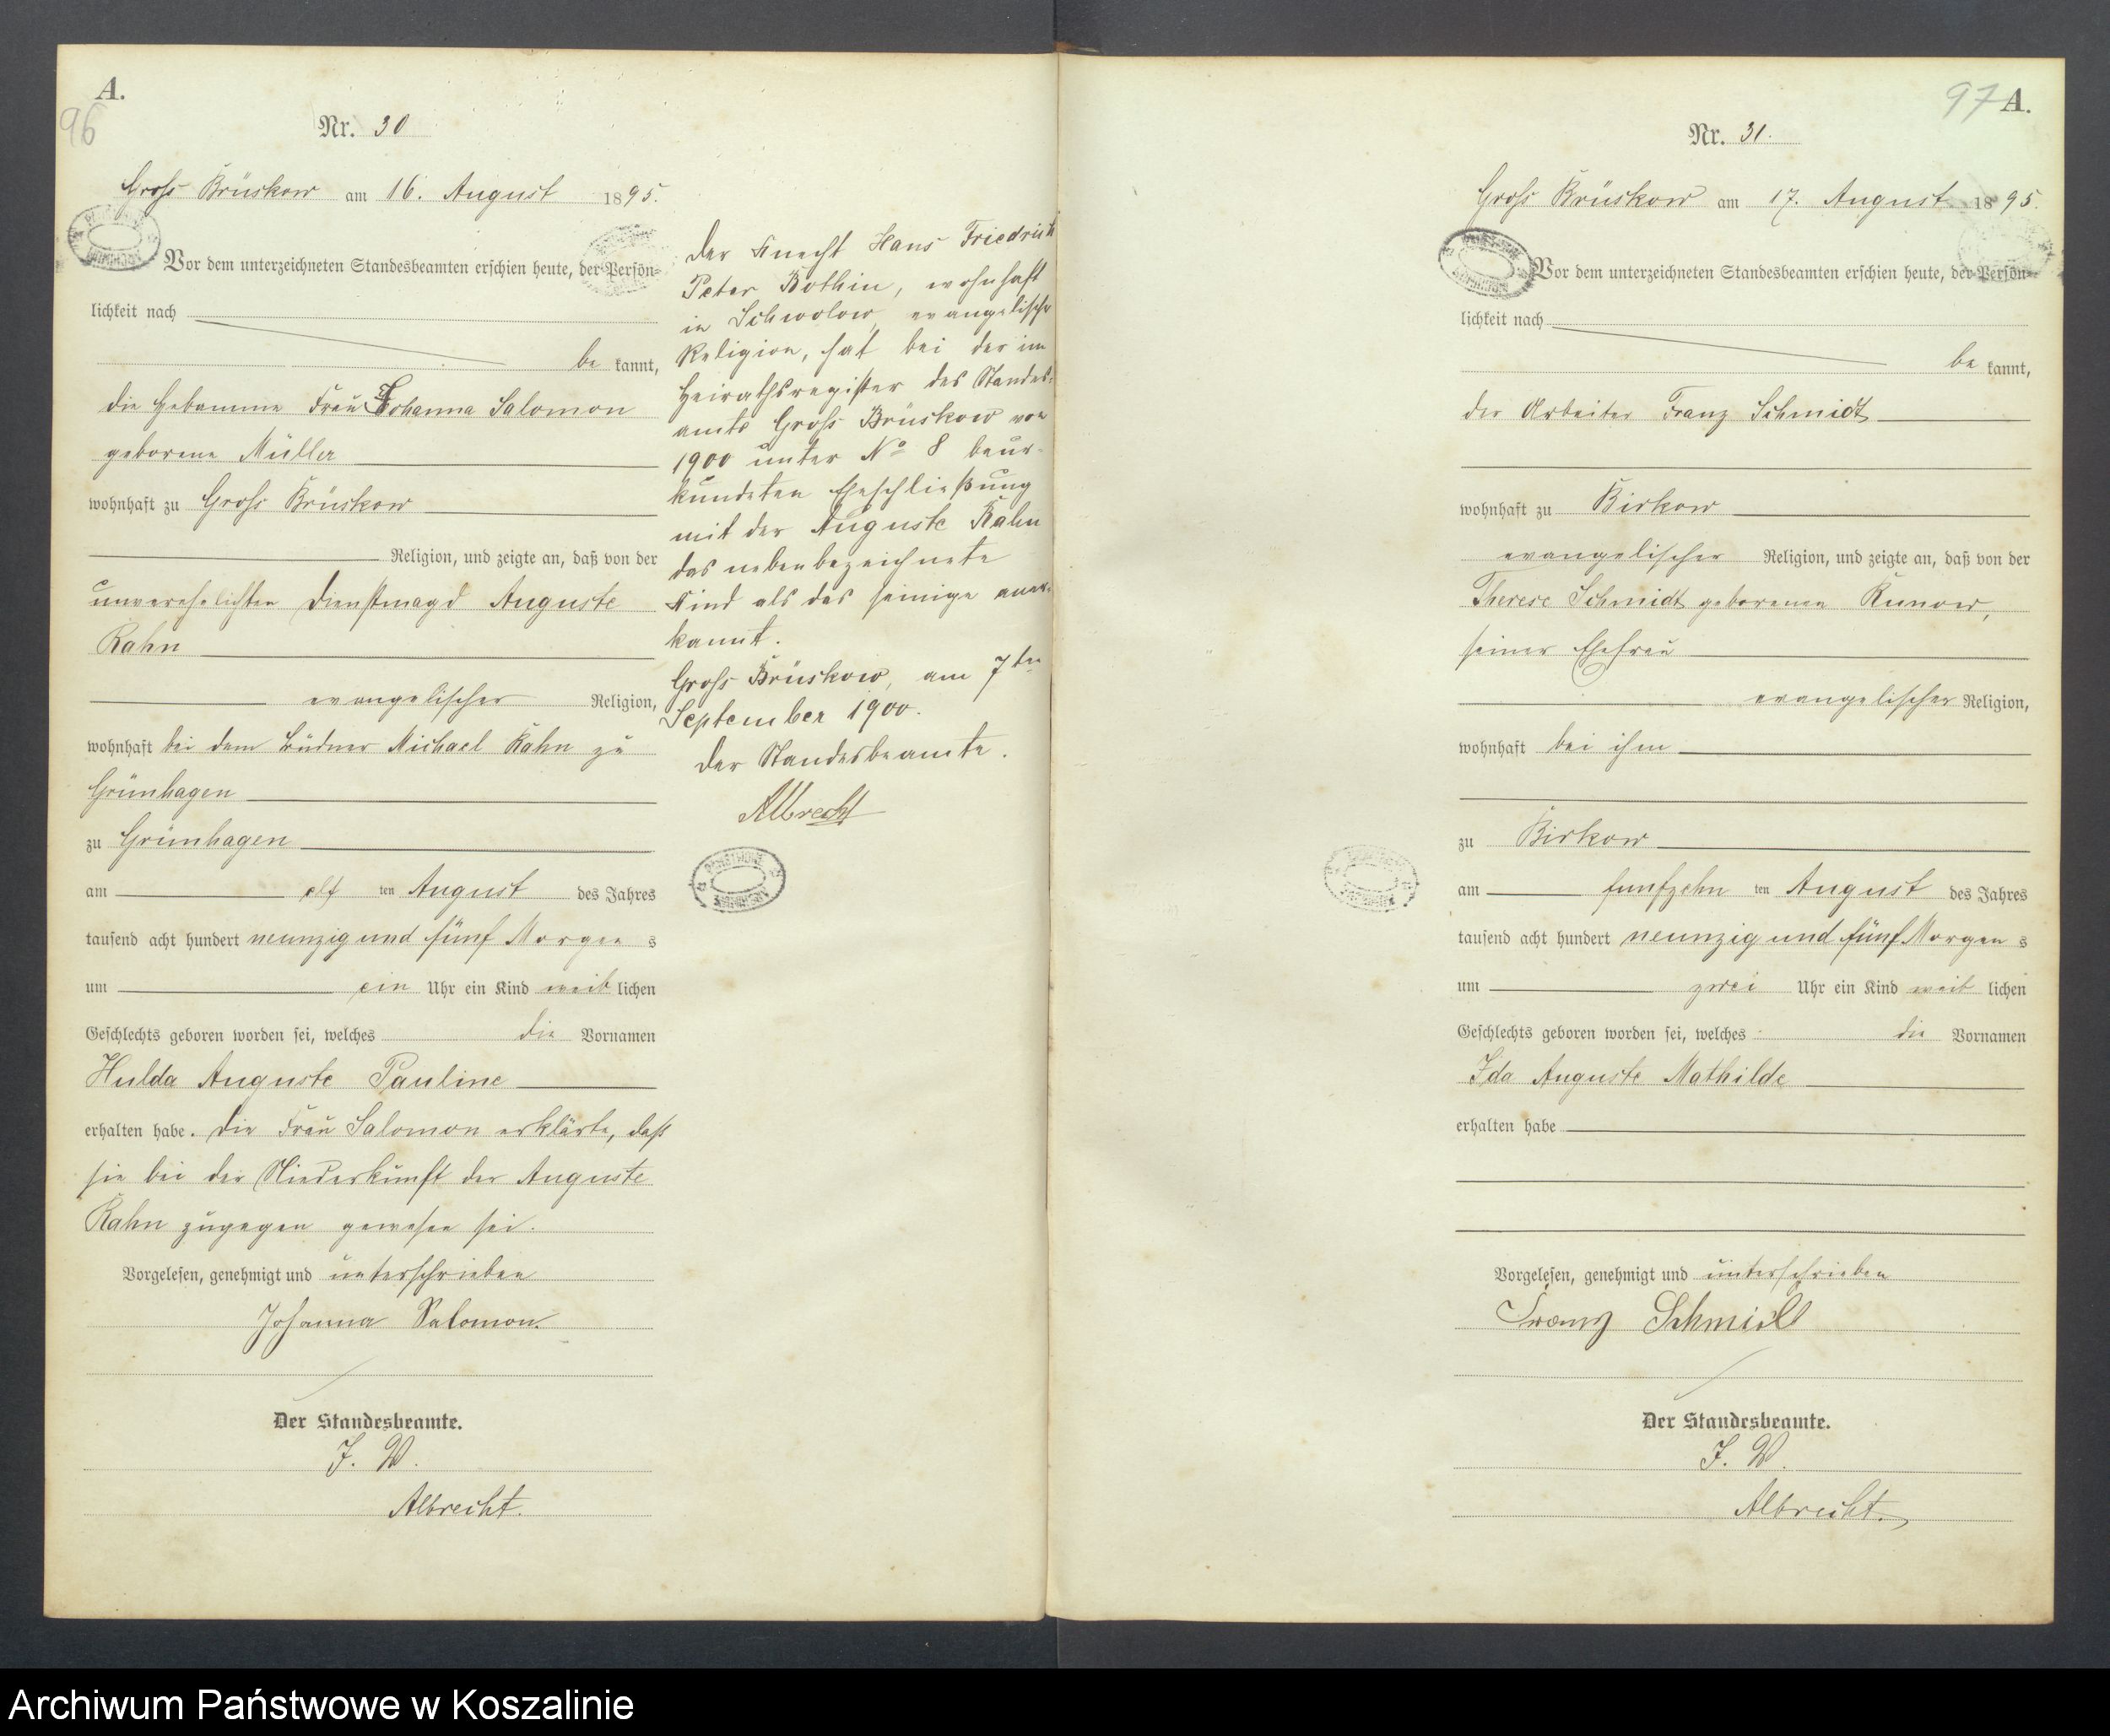 A.
96
Nr. 30
Gross Brüskow am 16. August 1895.
Vor dem unterzeichneten Standesbeamten erschien heute, der Persön-
lichkeit nach
be kannt,
die Hebamme Frau Johanna Salomon
geborene Müller
wohnhaft zu Gross Brüskow
Religion, und zeigte an, daß von der
unverehelichten Dienstmagd Auguste
Rahn
evangelischer Religion,
wohnhaft bei dem Büdner Michael Rahn zu
Grünhagen
zu Grünhagen
am elf ten August des Jahres
tausend acht hundert neunzig und fünf Morgen s
um ein Uhr ein Kind weib lichen
Geschlechts geboren worden sei, welches die Vornamen
Hulda Auguste Pauline
erhalten habe. Die Frau Salomon erklärte, daß
sie bei der Niederkunft der Auguste
Rahn zugegen gewesen sei.
Vorgelesen, genehmigt und unterschrieben
Johanna Salomon.
Der Standesbeamte.
J. V.
Albrecht.
Der Knecht Hans Friedrich
Peter Bothin, wohnhaft
in Schwolow, evangelischer
Religion, hat bei der im
Heirathsregister des Standes-
amts Gross Brüskow von
1900 unter No 8 beur-
kundeten Eheschließung
mit der Auguste Rahn
das nebenbezeichnete
Kind als das seinige aner-
kannt.
Gross Brüskow, am 7ten
September 1900.
Der Standesbeamte.
Albrecht
97 A.
Nr. 31.
Gross Brüskow am 17. August 1895.
Vor dem unterzeichneten Standesbeamten erschien heute, der Persön-
lichkeit nach
be kannt,
der Arbeiter Franz Schmidt
wohnhaft zu Birkow
evangelischer Religion, und zeigte an, daß von der
Therese Schmidt geborenen Kunow,
seiner Ehefrau
evangelischer Religion,
wohnhaft bei ihm
zu Birkow
am funfzehn ten August des Jahres
tausend acht hundert neunzig und fünf Morgen s
um zwei Uhr ein Kind weib lichen
Geschlechts geboren worden sei, welches die Vornamen
Ida Auguste Mathilde
erhalten habe
Vorgelesen, genehmigt und unterschrieben
Franz Schmidt
Der Standesbeamte.
J. V.
Albrecht.
Archiwum Państwowe w Koszalinie